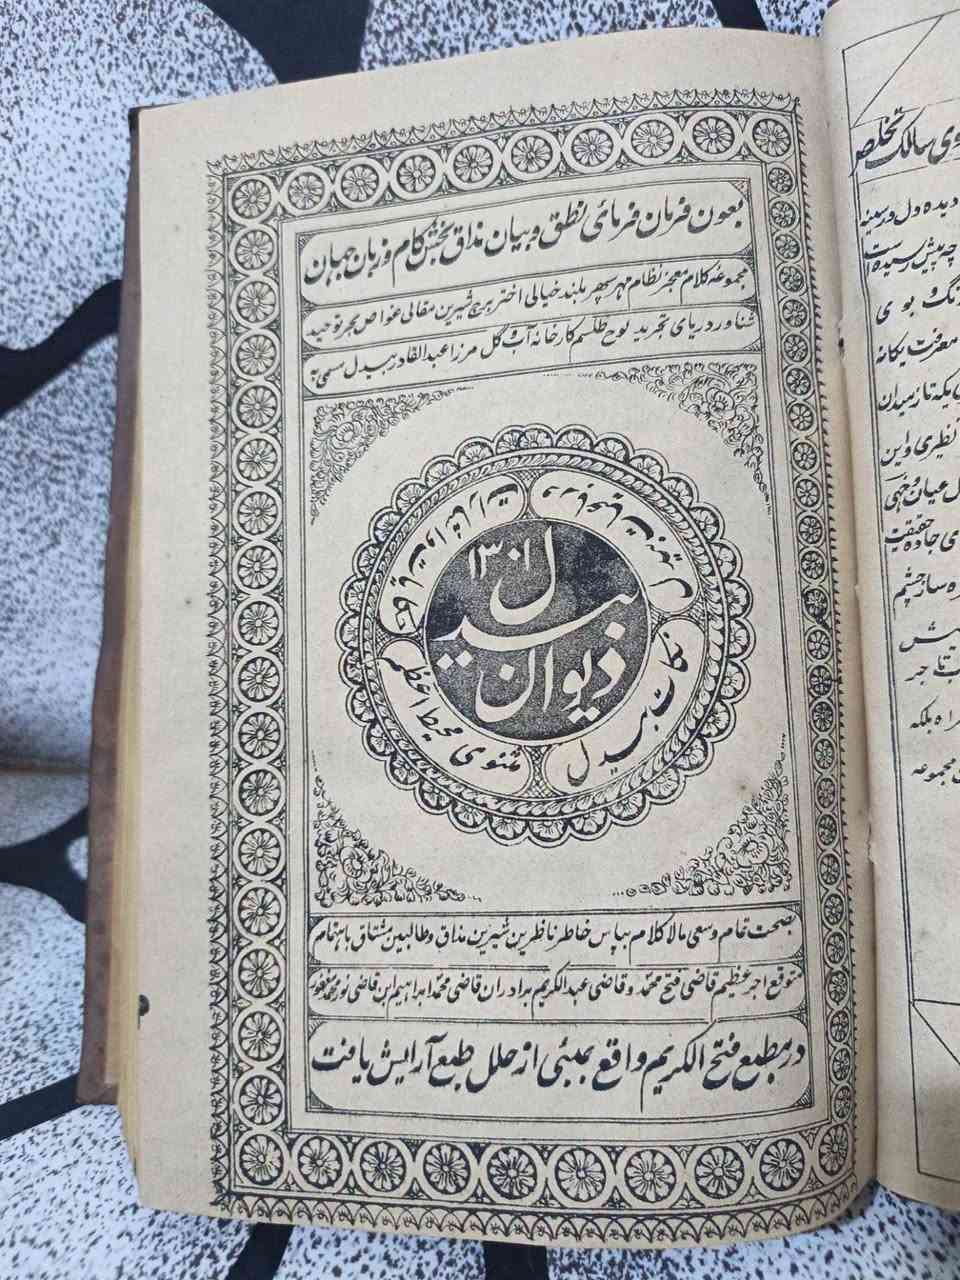 بعون فرمان فرمائی نطق و بیان مذاق بخش کام و زبان جهان
مجموعهٔ کلام معجز نظام مهر سپهر بلند خیالی اختر برج شیرین مقالی غواص بحر توحید
شناور دریای تجرید لوح طلسم کارخانه آب و گل مرزا عبد القادر بیدل مسمی به
دیوان
بیدل
۱۳۰۱
نکات بیدل
مثنوی محیط اعظم
بصحت تمام و سعی مالا کلام بپاس خاطر ناظرین شیرین مذاق و طالبین مشتاق باهتمام
متوقع اجر عظیم قاضی فتح محمد و قاضی عبد الکریم برادران قاضی محمد ابراهیم ابن قاضی نور محمد
در مطبع فتح الکریم واقع بمبئی از حلل طبع آرایش یافت
سالک تخلص
دیده دل و سینه
چه پیش رسیده است
رنگ و بوی
معرفت یگانه
یکه تاز میدان
نظیری و این
عیان و
جاده حقیقت
ساز چشم
بلکه
مجموعه